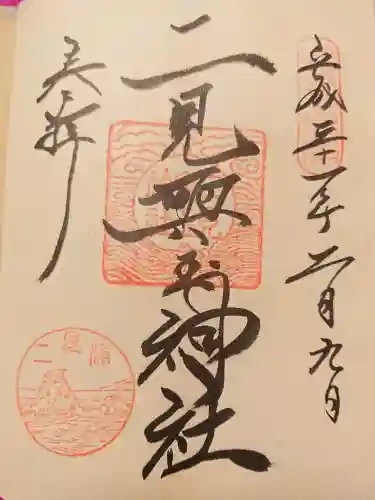 平成三十一年二月九日
二見興玉神社
奉拝
二見浦